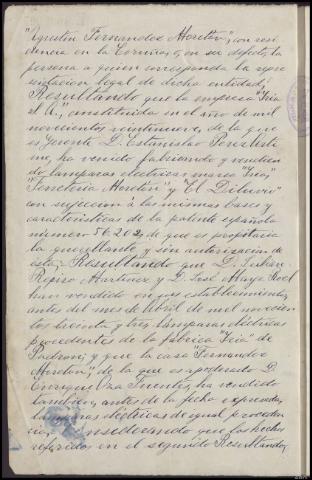 "Agustin Fernandez Moretón", con resi
dencia en la Coruña, ó en su defecto, la
persona a quien corresponda la repre
sentacion legal de dicha entidad;
Resultando que la empresa "Fria
S. A.", constituida en el año de mil
novecientos veintinueve, de la que
es Gerente D. Estanislao
me, ha venido fabricando y vendien
do lamparas electricas marca
"Ferreteria Moretón" y "El Diluvio"
con sujeccion á las mismas bases y
caracteristicas de la patente española
número 56.202, de que es propietaria
la querellante y sin autorizacion de
esta; Resultando que D.
Martinez y D. José
han vendido en sus establecimientos,
antes del mes de Abril de mil novecien
tos treinta y tres lamparas eléctricas
procedentes de la fábrica de
Padron; y que la casa "Fernandez
Moretón", de la que es apoderado D.
Enrique ha vendido
tambien, antes de la fecha expresada,
lamparas eléctricas de igual proceden
cia; Considerando que los hechos
referidos en el segundo Resultando,